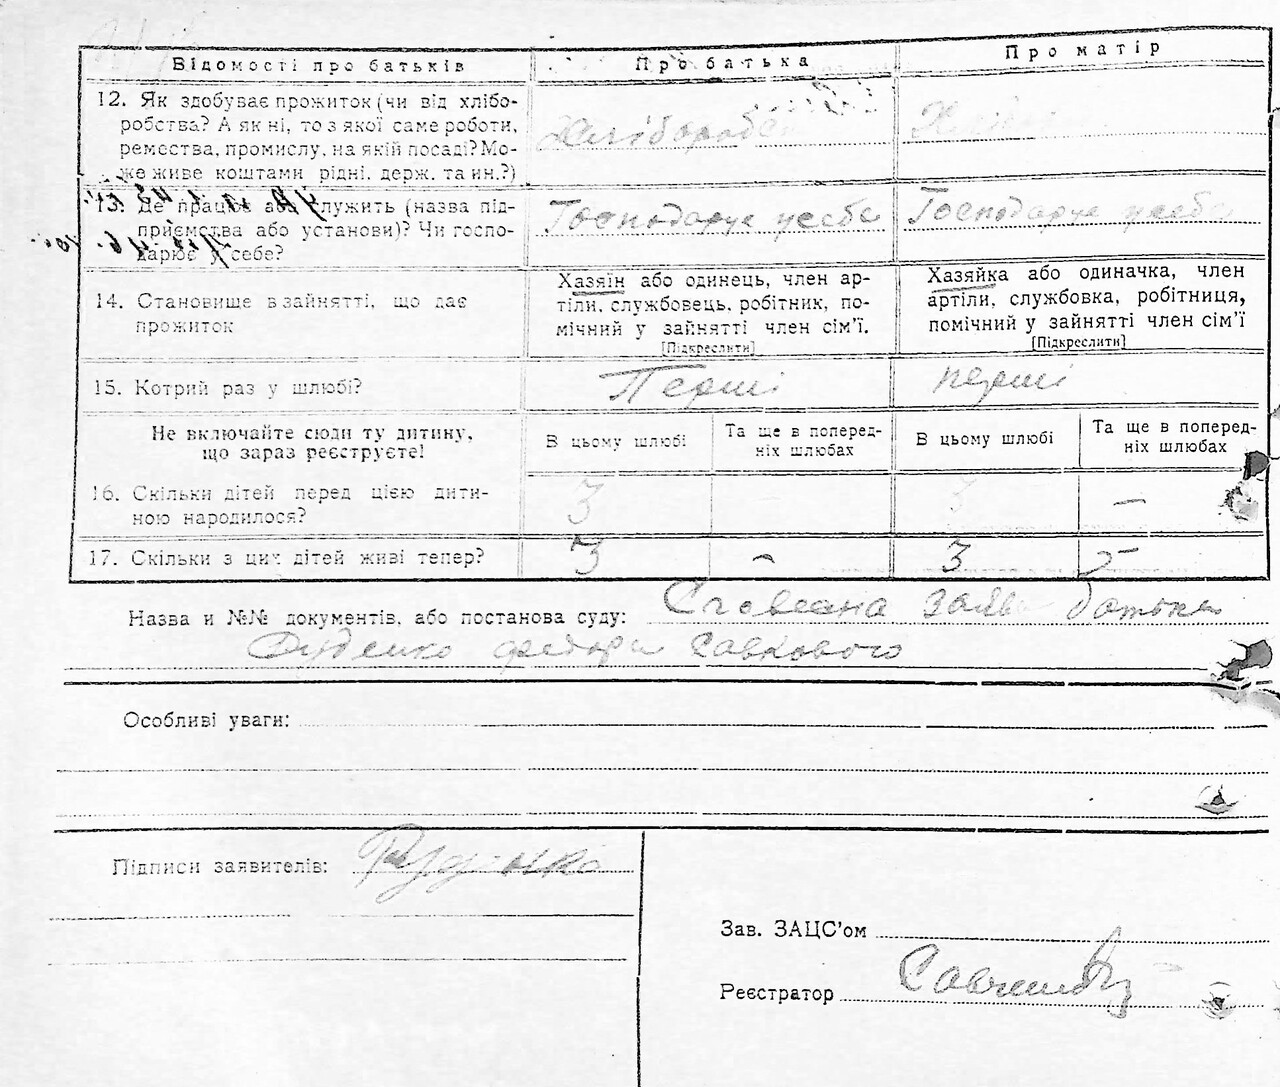 Відомості про батьків
Про батька
Про матір
12. Як здобуває прожиток (чи від хлібо-
робства? А як ні, то з якої саме роботи,
ремества, промислу, на якій посаді? Мо-
же живе коштами рідні, держ. та ин.?)
Хлібороб
13. Де працює або служить (назва під-
приємства або установи)? Чи госпо-
дарює у себе?
Господарує у себе
Господарує у себе
14. Становище в зайнятті, що дає
прожиток
Хазяїн або одинець, член ар-
тіли, службовець, робітник, по-
мічний у зайнятті член сім'ї.
[Підкреслити]
Хазяйка або одиначка, член
артіли, службовка, робітниця,
помічний у зайнятті член сім'ї
[Підкреслити]
15. Котрий раз у шлюбі?
Перші
перші
Не включайте сюди ту дитину,
що зараз реєструєте!
В цьому шлюбі
Та ще в поперед-
ніх шлюбах
В цьому шлюбі
Та ще в поперед-
ніх шлюбах
16. Скільки дітей перед цією дити-
ною народилося?
3
3
–
17. Скільки з цих дітей живі тепер?
3
–
3
–
Назва и №№ документів, або постанова суду: Словесна заява батька
Руденко Федора Савкового
Особливі уваги:
Підписи заявителів: Руденко
Зав. ЗАЦС'ом
Реєстратор